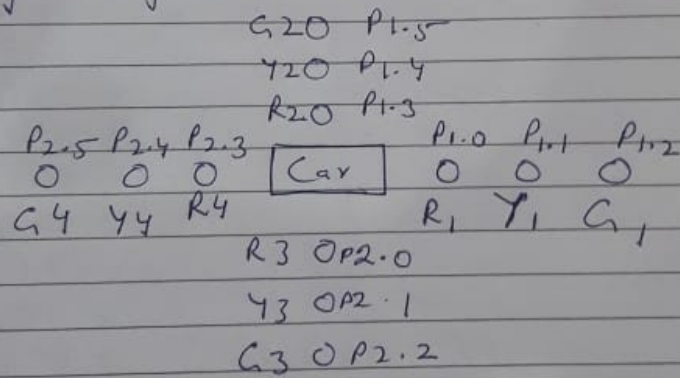 G2O P1.5
Y2O P1.4
R2O P1.3
P2.5 P2.4 P2.3 P1.0 P1.1 P1.2
O O O Car O O O
G4 Y4 R4 R1 Y1 G1
R3 O P2.0
Y3 O P2.1
G3 O P2.2